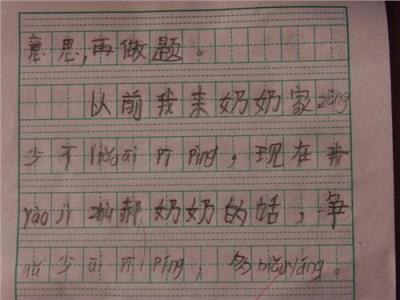 意思,再做题。
以前我来奶奶家zǒng
少不liǎo ái pī píng，现在我
yào jì 郝奶奶的话，争
qǔ少ái pī píng，多biǎoyáng。